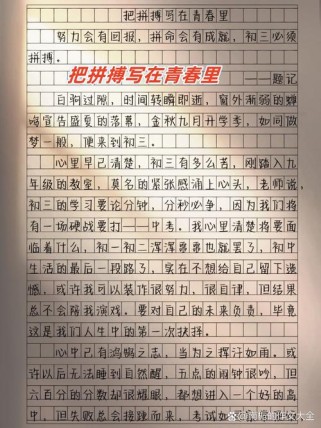 把拼搏写在青春里
努力会有回报，拼命会有成就，初三必须
拼搏。
把拼搏写在青春里
——题记
白驹过隙，时间转瞬即逝，窗外渐弱的蝉
鸣宣告盛夏的落幕，金秋九月开学季，如同做
梦一般，便来到初三。
心里早已清楚，初三有多么苦，刚踏入九
年级的教室，莫名的紧张感涌上心头，老师说，
初三的学习要论分钟，分秒必争，因为我们将
有一场硬战要打——中考。我心里清楚将要面
临着什么，初一初二浑浑噩噩也就罢了，初中
生活的最后一段路了，实在不想给自己留下遗
憾，或许我可以装作很努力，很自律，但结果
总不会陪我演戏。要对自己的未来负责，毕竟
这是我们人生中的第一次抉择。
心中已有鸿鹄之志，当为之挥汗如雨。或
许以后无法睡到自然醒，五点的闹钟很吵，但
六百分的分数却很耀眼，都想进入一个好的高
中，但失败总会接踵而来，考试如